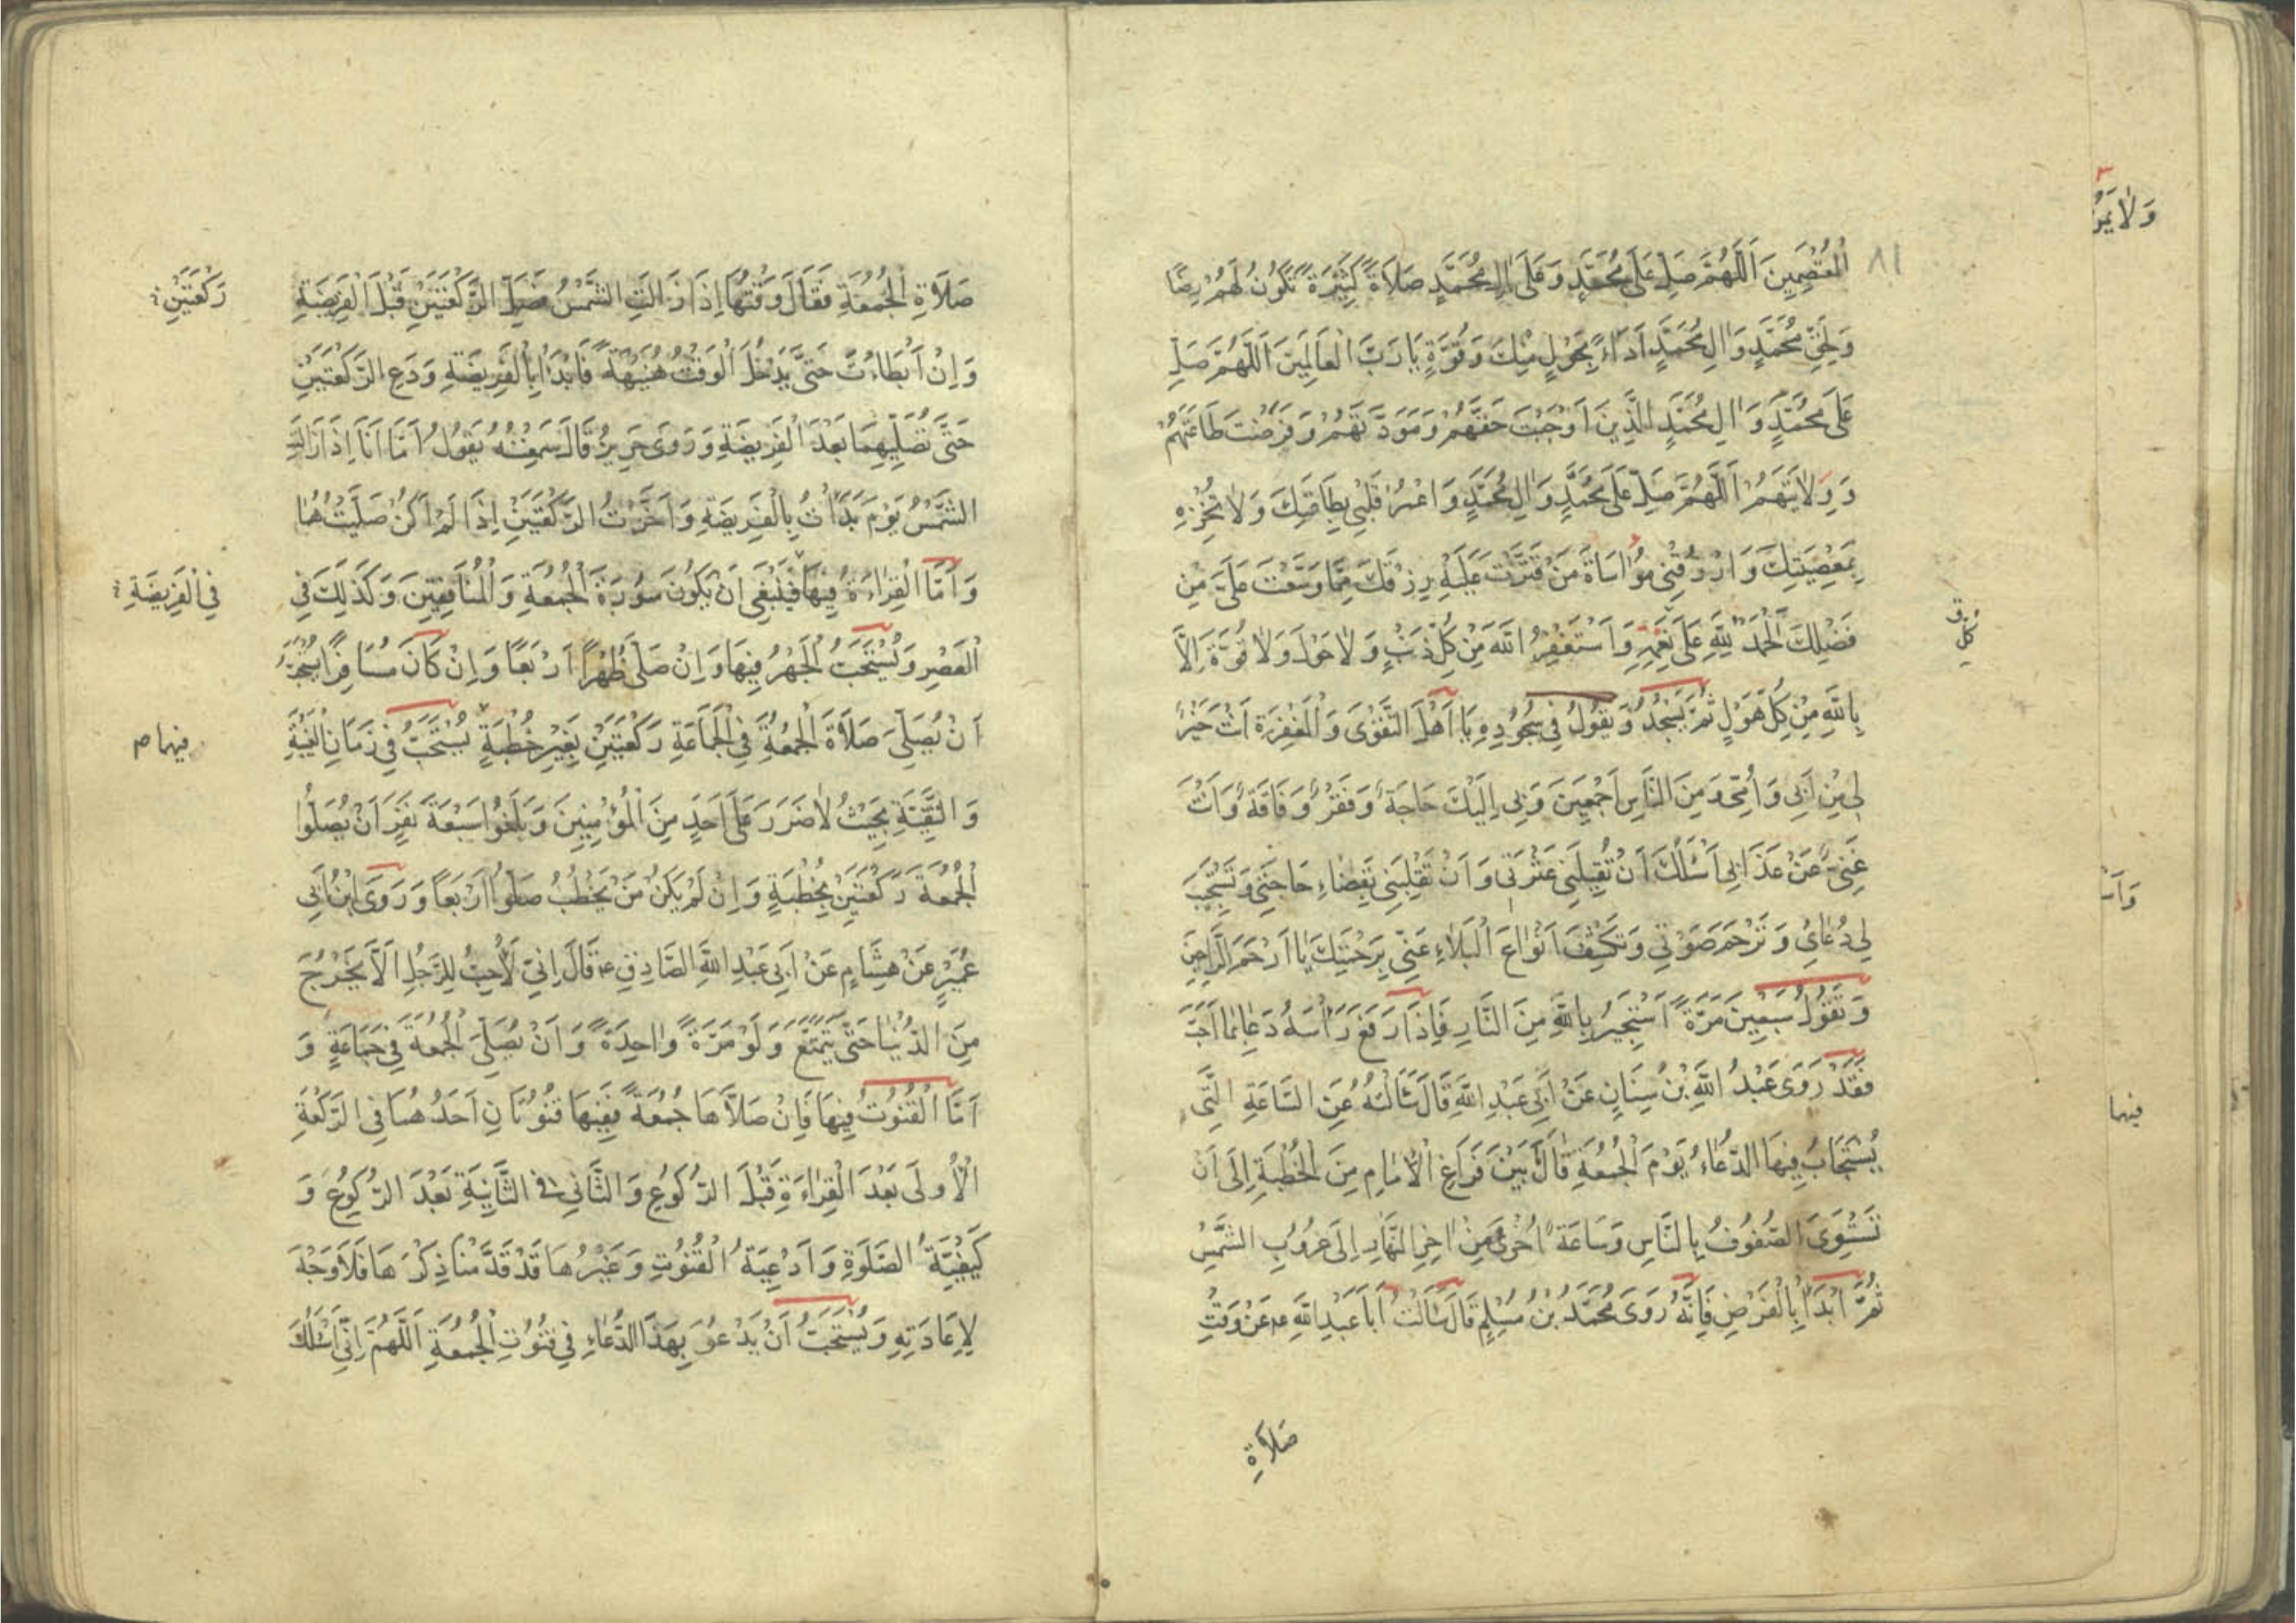 ٨١
اَلْمُعْتَصِمِينَ اَللّٰهُمَّ صَلِّ عَلٰى مُحَمَّدٍ وَعَلٰى اٰلِ مُحَمَّدٍ صَلَاةً كَثِيرَةً تَكُونُ لَهُمْ رِضًا
وَلِحَقِّ مُحَمَّدٍ وَاٰلِ مُحَمَّدٍ اَدَاءً بِحَوْلٍ مِنْكَ وَقُوَّةٍ يَا رَبَّ الْعَالَمِينَ اَللّٰهُمَّ صَلِّ
عَلٰى مُحَمَّدٍ وَاٰلِ مُحَمَّدٍ الَّذِينَ اَوْجَبْتَ حَقَّهُمْ وَمَوَدَّتَهُمْ وَفَرَضْتَ طَاعَتَهُمْ
وَوِلَايَتَهُمْ اَللّٰهُمَّ صَلِّ عَلٰى مُحَمَّدٍ وَاٰلِ مُحَمَّدٍ وَاعْمُرْ قَلْبِي بِطَاعَتِكَ وَلَا تُخْزِهِ
بِمَعْصِيَتِكَ وَارْزُقْنِي مُوَاسَاةَ مَنْ قَتَّرْتَ عَلَيْهِ رِزْقَكَ مِمَّا وَسَّعْتَ عَلَيَّ مِنْ
فَضْلِكَ اَلْحَمْدُ لِلّٰهِ عَلٰى نِعَمِهِ وَاَسْتَغْفِرُ اللّٰهَ مِنْ كُلِّ ذَنْبٍ وَلَا حَوْلَ وَلَا قُوَّةَ اِلَّا
بِاللّٰهِ مِنْ كُلِّ هَوْلٍ ثُمَّ يَسْجُدُ وَيَقُولُ فِي سُجُودِهِ يَا اَهْلَ التَّقْوٰى وَالْمَغْفِرَةِ اَنْتَ خَيْرٌ
لِي مِنْ اَبِي وَاُمِّي وَمِنَ النَّاسِ اَجْمَعِينَ وَبِي اِلَيْكَ حَاجَةٌ وَفَقْرٌ وَفَاقَةٌ وَاَنْتَ
غَنِيٌّ عَنْ عَذَابِي اَسْئَلُكَ اَنْ تُقِيلَنِي عَثْرَتِي وَاَنْ تَقْلِبَنِي بِقَضَاءِ حَاجَتِي وَتَسْتَجِيبَ
لِي دُعَائِي وَتَرْحَمَ صَوْتِي وَتَكْشِفَ اَنْوَاعَ الْبَلَاءِ عَنِّي بِرَحْمَتِكَ يَا اَرْحَمَ الرَّاحِمِينَ
وَتَقُولُ سَبْعِينَ مَرَّةً اَسْتَجِيرُ بِاللّٰهِ مِنَ النَّارِ فَاِذَا رَفَعَ رَأْسَهُ دَعَا بِمَا اَحَبَّ
فَقَدْ رَوٰى عَبْدُ اللّٰهِ بْنُ سِنَانٍ عَنْ اَبِي عَبْدِ اللّٰهِ قَالَ سَأَلْتُهُ عَنِ السَّاعَةِ الَّتِي
يُسْتَجَابُ فِيهَا الدُّعَاءُ يَوْمَ الْجُمُعَةِ قَالَ بَيْنَ فَرَاغِ الْاِمَامِ مِنَ الْخُطْبَةِ اِلٰى اَنْ
تَسْتَوِيَ الصُّفُوفُ بِالنَّاسِ وَسَاعَةٌ اُخْرٰى مِنْ اٰخِرِ النَّهَارِ اِلٰى غُرُوبِ الشَّمْسِ
ثُمَّ ابْدَأْ بِالْفَرْضِ فَاِنَّهُ رَوٰى مُحَمَّدُ بْنُ مُسْلِمٍ قَالَ سَأَلْتُ اَبَا عَبْدِ اللّٰهِ عم عَنْ وَقْتِ
صَلَاةِ
فيهما
صَلَاةِ الْجُمُعَةِ فَقَالَ وَقْتُهَا اِذَا زَالَتِ الشَّمْسُ فَصَلِّ الرَّكْعَتَيْنِ قَبْلَ الْفَرِيضَةِ
رَكْعَتَيْنِ
وَاِنْ اَبْطَأْتَ حَتّٰى يَدْخُلَ الْوَقْتُ هُنَيْهَةً فَابْدَأْ بِالْفَرِيضَةِ وَدَعِ الرَّكْعَتَيْنِ
حَتّٰى تُصَلِّيَهُمَا بَعْدَ الْفَرِيضَةِ وَرَوٰى حَرِيزٌ قَالَ سَمِعْتُهُ يَقُولُ اَمَّا اَنَا اِذَا زَالَتِ
الشَّمْسُ يَوْمَ بَدَأْتُ بِالْفَرِيضَةِ وَاَخَّرْتُ الرَّكْعَتَيْنِ اِذَا لَمْ اَكُنْ صَلَّيْتُهَا
وَاَمَّا الْقِرَاءَةُ فِيهَا فَيَنْبَغِي اَنْ يَكُونَ سُورَةَ الْجُمُعَةِ وَالْمُنَافِقِينَ وَكَذٰلِكَ فِي
فِي الْفَرِيضَةِ
الْعَصْرِ وَيُسْتَحَبُّ الْجَهْرُ فِيهَا وَاِنْ صَلّٰى ظُهْرًا اَرْبَعًا وَاِنْ كَانَ مُسَافِرًا اسْتُحِبَّ
اَنْ يُصَلِّيَ صَلَاةَ الْجُمُعَةِ فِي الْجَمَاعَةِ رَكْعَتَيْنِ بِغَيْرِ خُطْبَةٍ يُسْتَحَبُّ فِي زَمَانِ الْغَيْبَةِ
فيهما ص
وَالتَّقِيَّةِ بِحَيْثُ لَا ضَرَرَ عَلٰى اَحَدٍ مِنَ الْمُؤْمِنِينَ وَبَلَغُوا سَبْعَةَ نَفَرٍ اَنْ يُصَلُّوا
الْجُمُعَةَ رَكْعَتَيْنِ بِخُطْبَةٍ وَاِنْ لَمْ يَكُنْ مَنْ يَخْطُبُ صَلَّوْا اَرْبَعًا وَرَوٰى ابْنُ اَبِي
عُمَيْرٍ عَنْ هِشَامٍ عَنْ اَبِي عَبْدِ اللّٰهِ الصَّادِقِ عم قَالَ اِنِّي لَاُحِبُّ لِلرَّجُلِ اَلَّا يَخْرُجَ
مِنَ الدُّنْيَا حَتّٰى يَتَمَتَّعَ وَلَوْ مَرَّةً وَاحِدَةً وَاَنْ يُصَلِّيَ الْجُمُعَةَ فِي جَمَاعَةٍ وَ
اَمَّا الْقُنُوتُ فِيهَا فَاِنْ صَلَّاهَا جُمُعَةً فَفِيهَا قُنُوتَانِ اَحَدُهُمَا فِي الرَّكْعَةِ
الْاُولٰى بَعْدَ الْقِرَاءَةِ قَبْلَ الرُّكُوعِ وَالثَّانِي فِي الثَّانِيَةِ بَعْدَ الرُّكُوعِ وَ
كَيْفِيَّةُ الصَّلٰوةِ وَاَدْعِيَةُ الْقُنُوتِ وَغَيْرُهَا قَدْ قَدَّمْنَا ذِكْرَهَا فَلَا وَجْهَ
لِاِعَادَتِهِ وَيُسْتَحَبُّ اَنْ يَدْعُوَ بِهٰذَا الدُّعَاءِ فِي قُنُوتِ الْجُمُعَةِ اَللّٰهُمَّ اِنِّي اَسْئَلُكَ